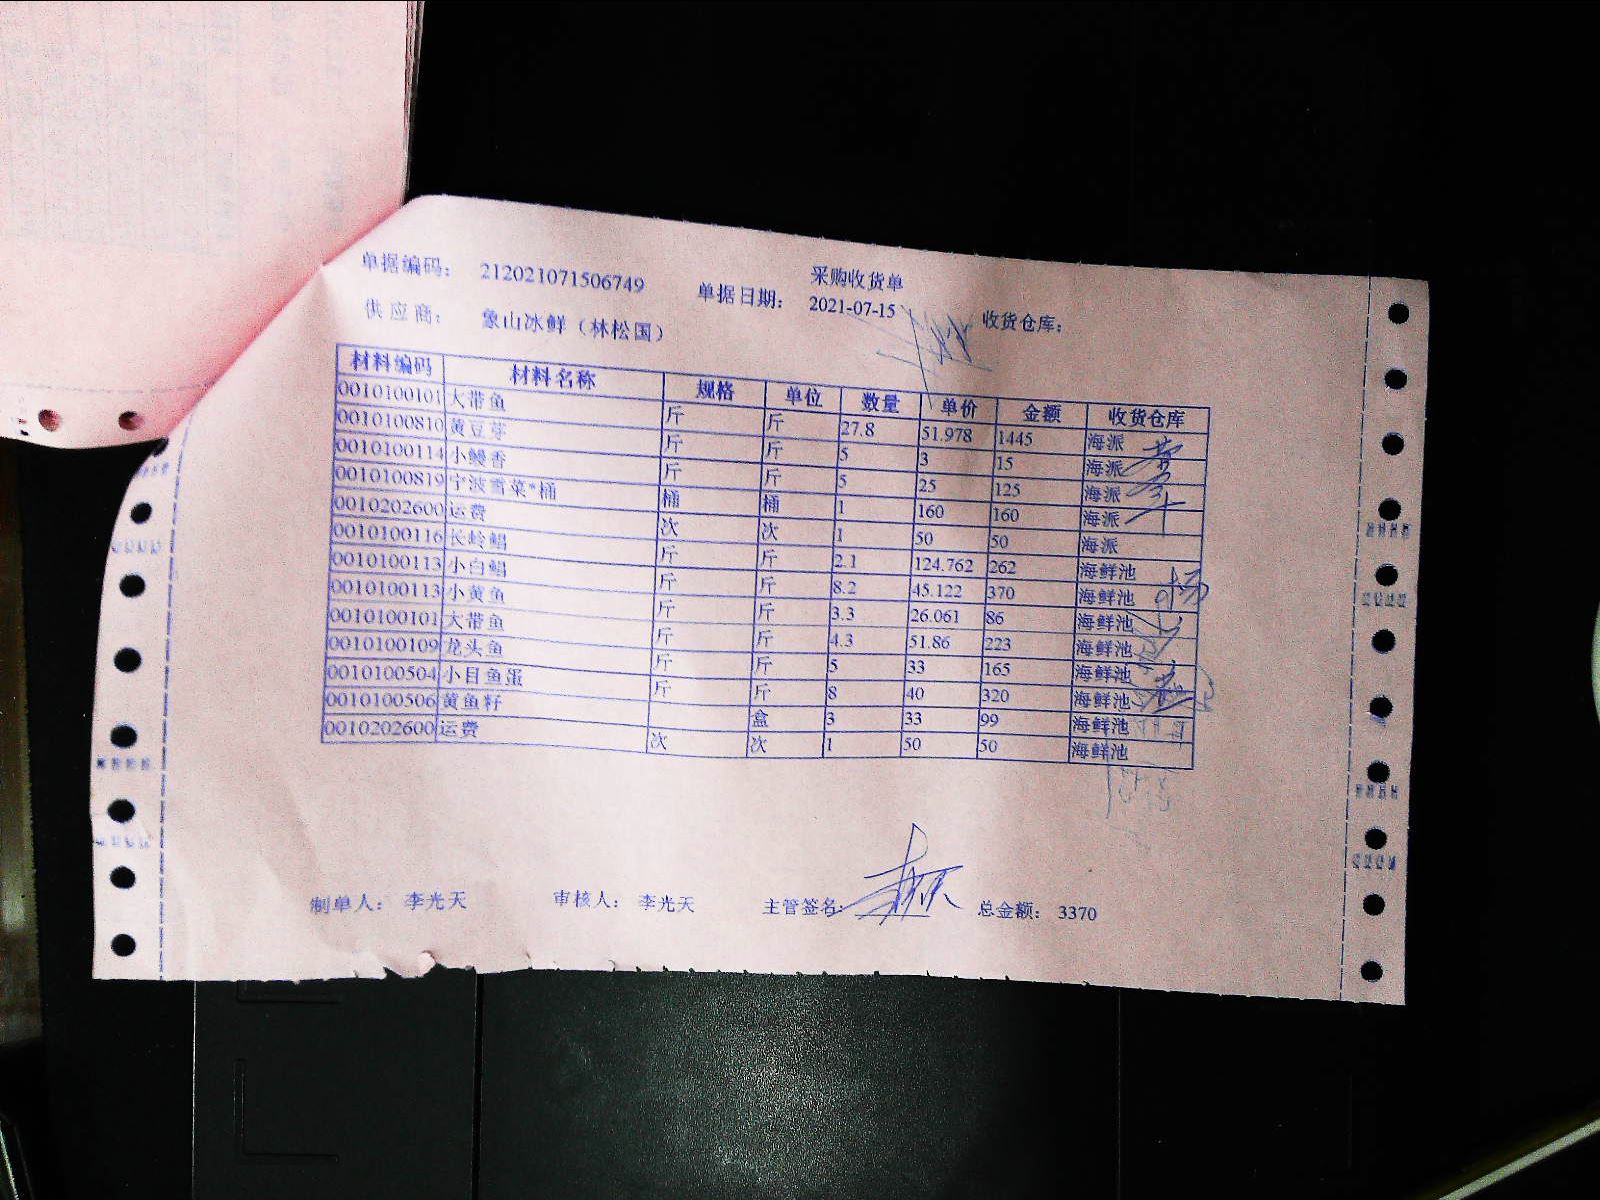 采购收货单
单据编码： 212021071506749 单据日期： 2021-07-15 收货仓库：
供应商： 象山冰鲜（林松国）
材料编码 材料名称 规格 单位 数量 单价 金额 收货仓库
0010100101 大带鱼 斤 斤 27.8 51.978 1445 海派
0010100810 黄豆芽 斤 斤 5 3 15 海派
0010100114 小鳗香 斤 斤 5 25 125 海派
0010100819 宁波雪菜*桶 桶 桶 1 160 160 海派
0010202600 运费 次 次 1 50 50 海派
0010100116 长岭鲳 斤 斤 2.1 124.762 262 海鲜池
0010100113 小白鲳 斤 斤 8.2 45.122 370 海鲜池
0010100113 小黄鱼 斤 斤 3.3 26.061 86 海鲜池
0010100101 大带鱼 斤 斤 4.3 51.86 223 海鲜池
0010100109 龙头鱼 斤 斤 5 33 165 海鲜池
0010100504 小目鱼蛋 斤 斤 8 40 320 海鲜池
0010100506 黄鱼籽 盒 3 33 99 海鲜池
0010202600 运费 次 次 1 50 50 海鲜池
制单人： 李光天 审核人： 李光天 主管签名： 总金额： 3370